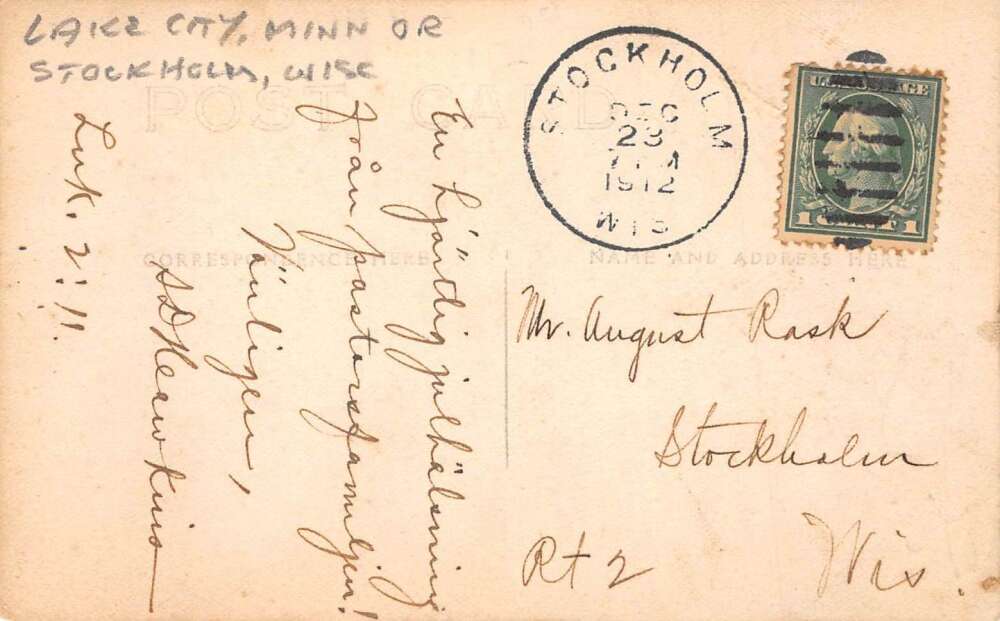 LAKE CITY, MINN OR
STOCKHOLM, WISC
POST CARD
CORRESPONDENCE HERE
NAME AND ADDRESS HERE
STOCKHOLM
DEC
23
1912
WIS
U.S. POSTAGE
1 CENT 1
En hjärtlig julhälsning
från pastorsfamiljen!
Vänligen,
Luk. 2:11.
Mr. August Rask
Stockholm
Rt 2
Wis.